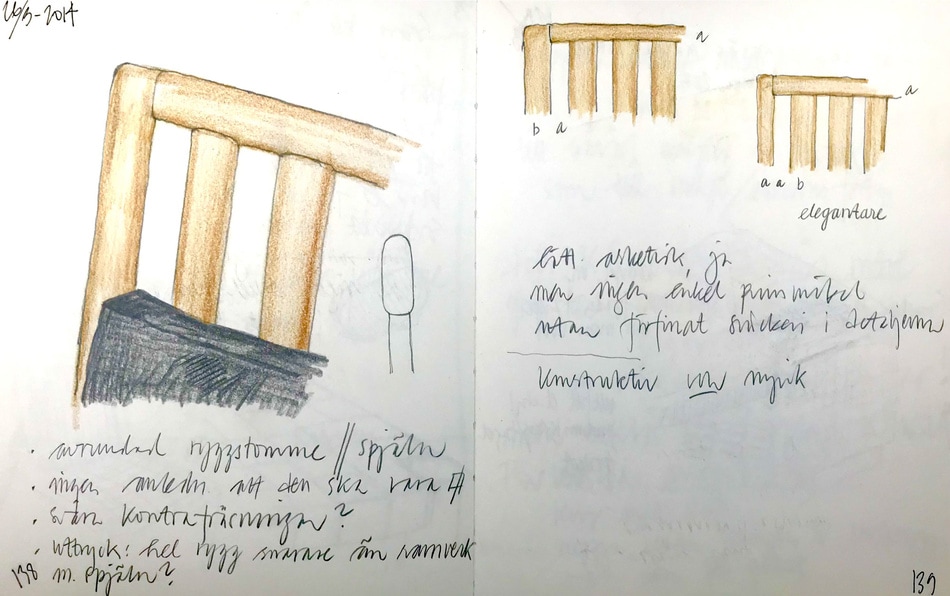 26/3-2014
• avrundad ryggstomme // spjälor
• ingen anledn att den ska vara
• svåra kontrafräsningar?
• uttryck: hel rygg snarare än ramverk
m. spjälor?
138
a
b a
a
a a b
elegantare
asketisk, ja
men ingen enkel pinnmöbel
utan förfinat snickeri i detaljerna
Konstruktiv och mjuk
139